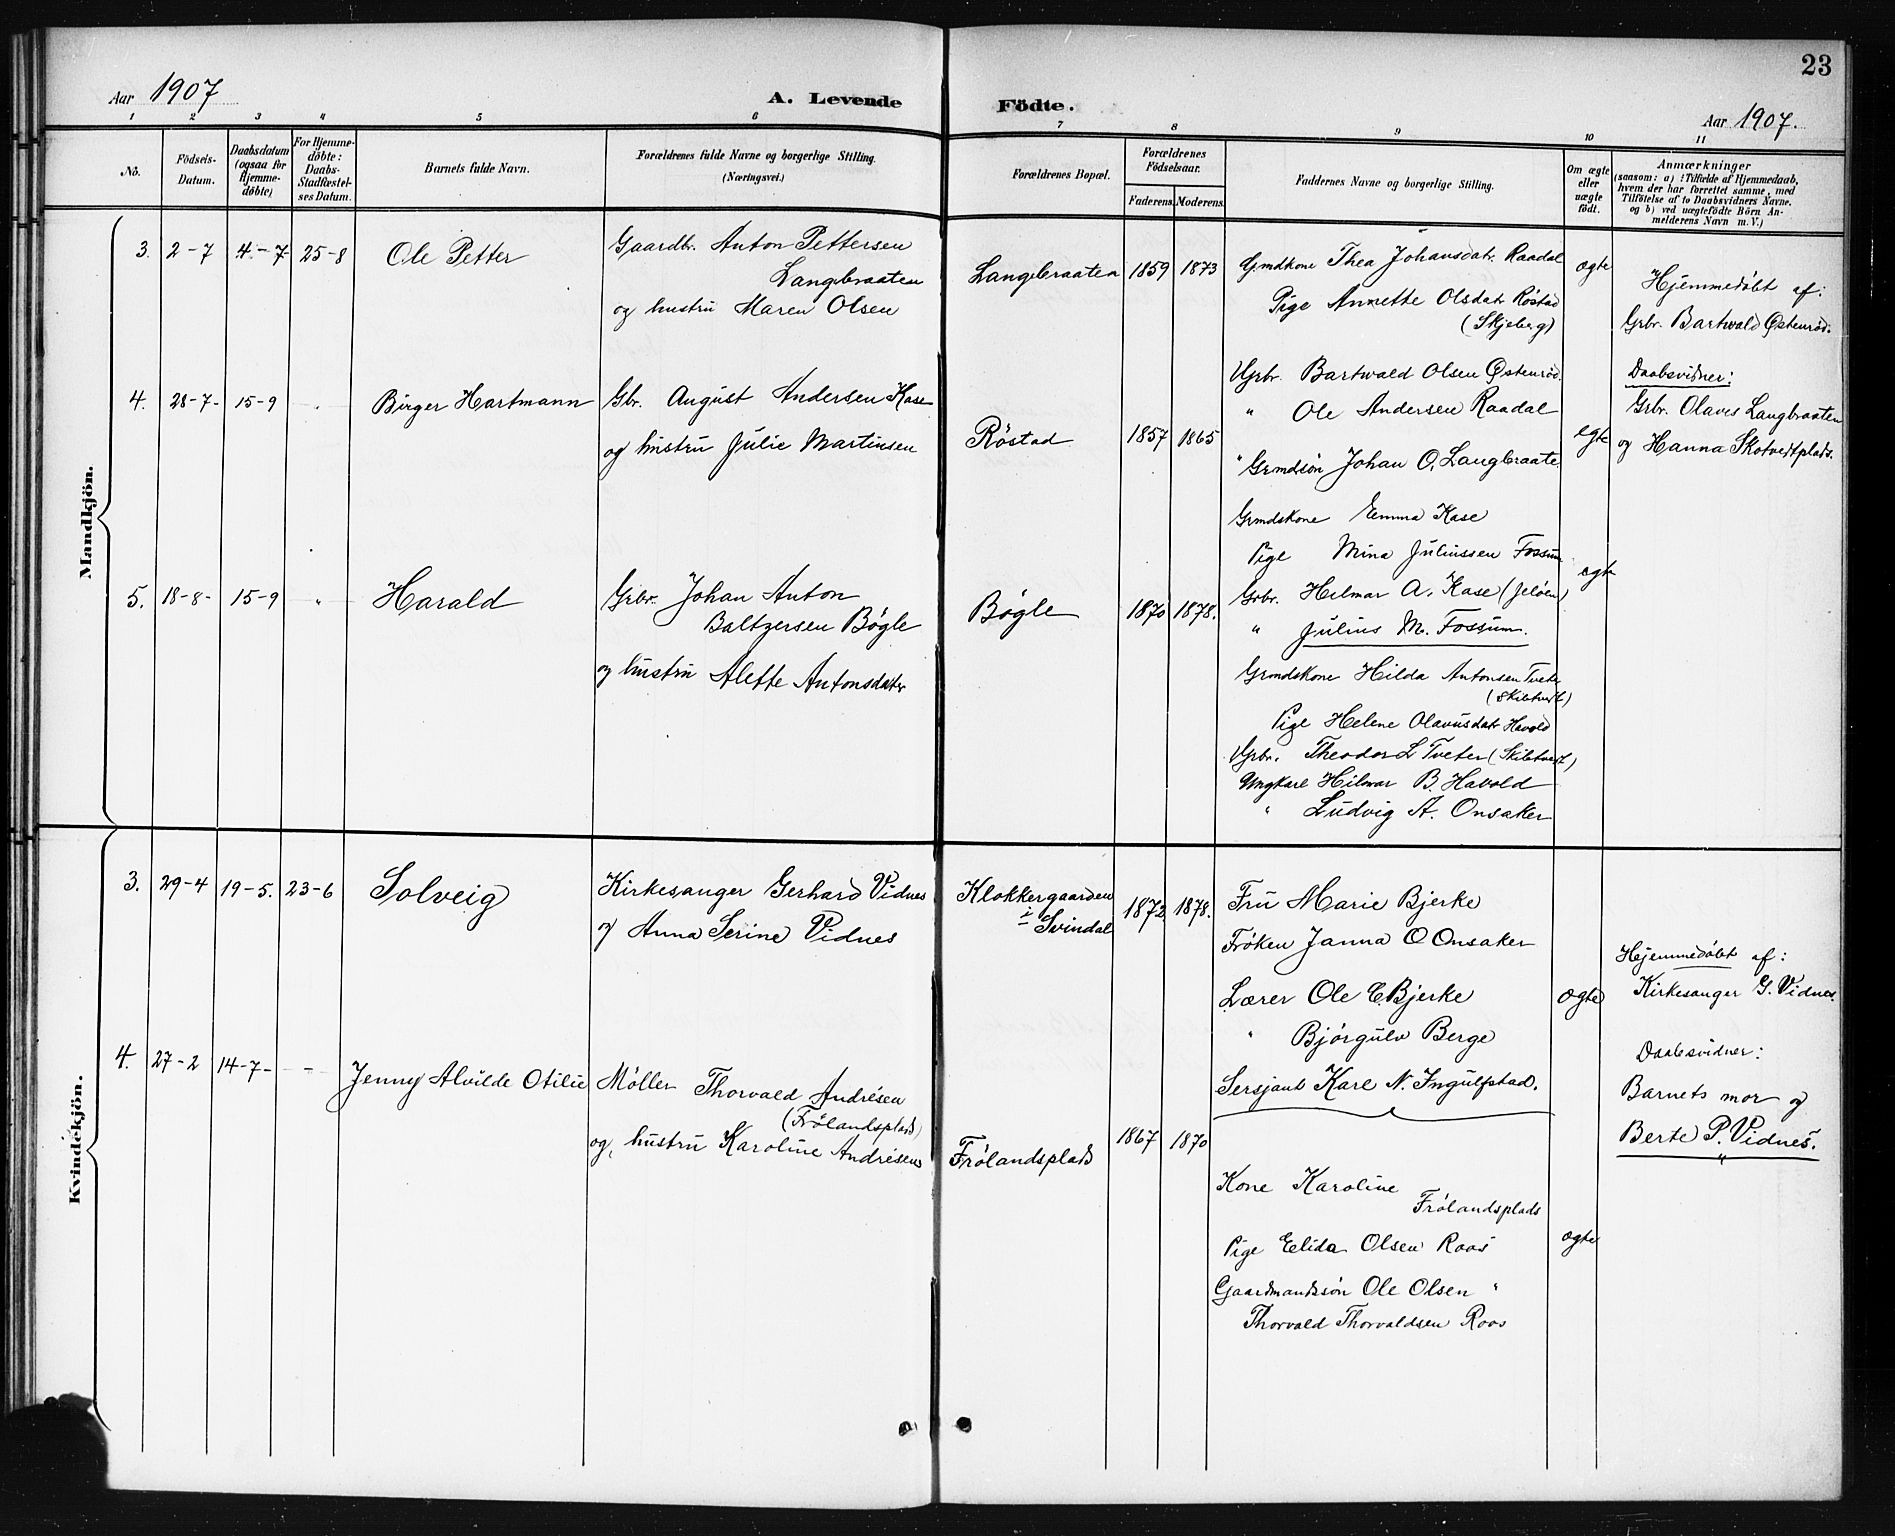 23
Aar 1907
A. Levende Födte.
Aar 1907.
1 2 3 4 5 6 7 8 9 10 11
No.
Födsels-
Datum.
Daabsdatum
(ogsaa for
Hjemme-
döbte)
For Hjemme-
döbte:
Daabs-
Stadfæstel-
ses Datum.
Barnets fulde Navn.
Forældrenes fulde Navne og borgerlige Stilling.
(Næringsvei.)
Forældrenes Bopæl.
Forældrenes
Födselsaar.
Faderens. Moderens.
Faddernes Navne og borgerlige Stilling.
Om ægte
eller
uægte
födt.
Anmærkninger
(saasom: a) i Tilfælde af Hjemmedaab,
hvem der har forrettet samme, med
Tilföielse af to Daabsvidners Navne.
og b) ved uægtefödte Börn An-
melderens Navn m. V.)
Mandkjön.
3. 2-7 4-7 25-8 Ole Petter
Gaardbr. Anton Pettersen
Langbraaten
og hustru Maren Olsen
Langbraaten 1859 1873
Grmdkone Thea Johansdatr. Raadal
Pige Annette Olsdatr Röstad
(Skjeberg)
Ugrbr. Bartwald Olsen Østenröd.
" Ole Andersen Raadal
" Grmdsön Johan O. Langbraate.
ægte
Hjemmedöbt af:
Grbr. Bartwald Østenröd.
Daabsvidner:
Grbr. Olaves Langbraaten
og Hanna Skotvedtplads.
4. 28-7- 15-9 " Birger Hartmann
Gbr. August Andersen Kase
og hustru Julie Martinsen
Röstad 1857 1865
Grmdskone Emma Kase
Pige Mina Juliussen Fossum
Grbr. Hilmar A. Kase (Jelöen)
" Julius M. Fossum.
egte
5. 18-8- 15-9 " Harald
Grbr. Johan Anton
Baltzersen Bögle
og hustru Alette Antonsdatr
Bögle 1870 1878.
Grmdskone Hilda Antonsen Tveter
(Skibtvedt)
Pige Helene Olavusdatr Havold
Ugrbr. Theodor L Tveter (Skibtvedt)
Ungkarl Hilmar B. Havold
" Ludvig A. Onsaker
egte
Kvindekjön.
3. 29-4 19-5. 23-6 Solveig
Kirkesanger Gerhard Vidnes
og Anna Serine Vidnes
Klokkergaarden
i Svindal
1872 1878.
Fru Marie Bjerke
Fröken Janna O Onsaker
Lærer Ole E. Bjerke
" Björgulv Berge
Sersjant Karl N. Ingulfstad.
ægte
Hjemmedöbt af:
Kirkesanger G. Vidnes.
Daabsvidner:
Barnets mor og
Berte P. Vidnes.
4. 27-2 14-7- - Jenny Alvilde Otilie
Möller Thorvald Andrésen
(Frölandsplads)
og hustru Karoline Andrésen
Frölandsplads 1867 1870
Kone Karoline
Frölandsplads
Pige Elida Olsen Roos
Gaardmandssön Ole Olsen "
Thorvald Thorvaldsen Roos
ægte